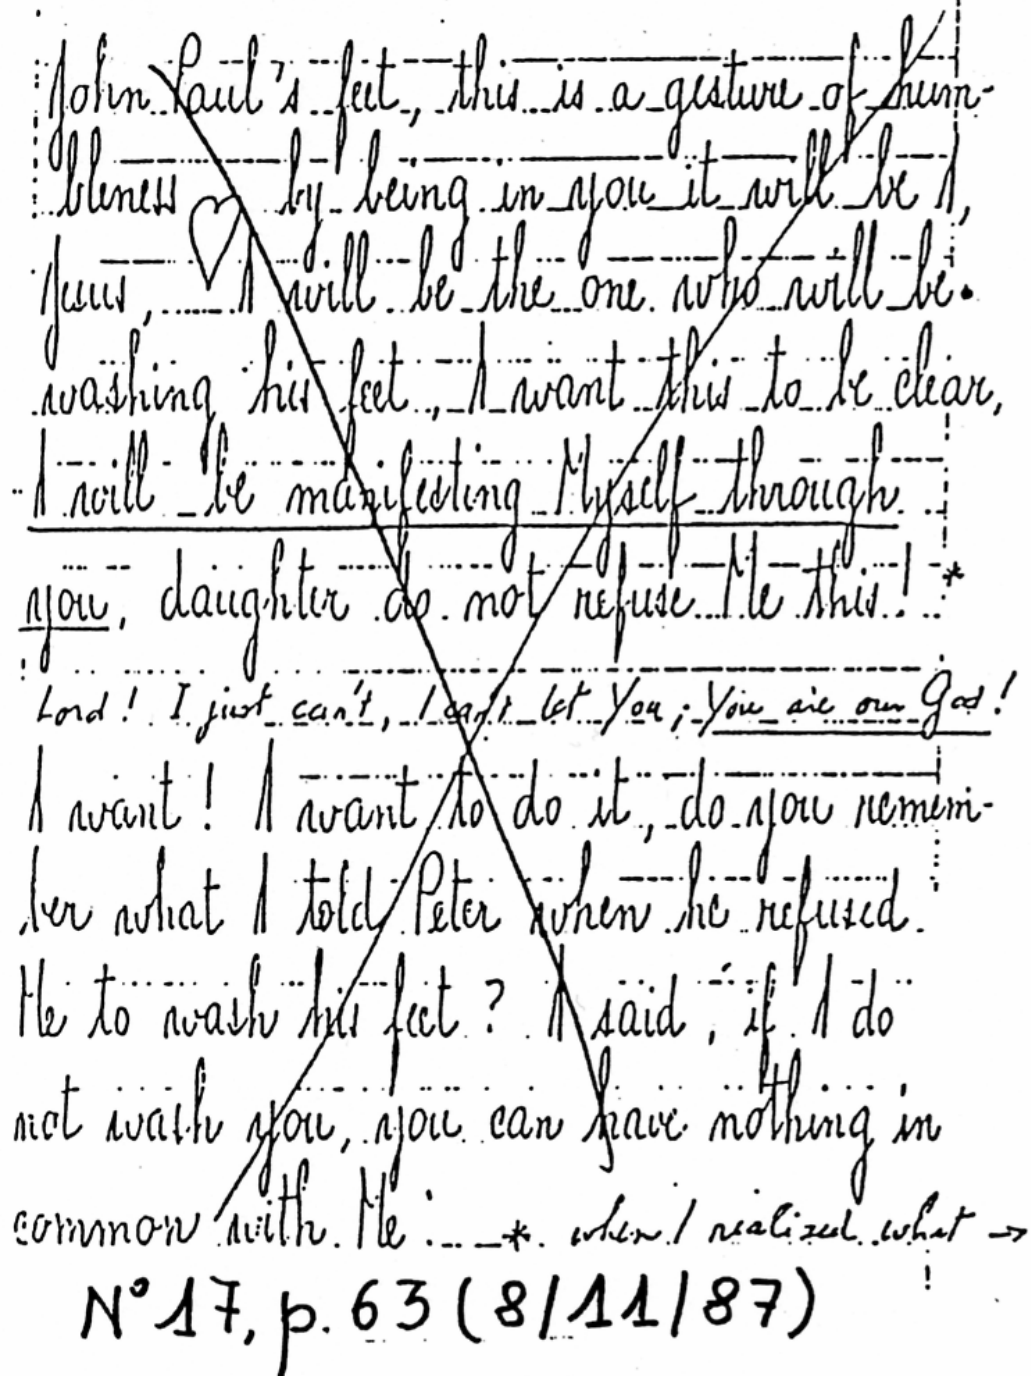 John Paul's feet, this is a gesture of hum-
bleness by being in you it will be I,
Jesus, I will be the one who will be
washing his feet, I want this to be clear,
I will be manifesting Myself through
you, daughter do not refuse Me this! *
Lord! I just can't, I can't let You; You are our God!
I want! I want to do it, do you remem-
ber what I told Peter when he refused
Me to wash his feet? I said, if I do
not wash you, you can have nothing in
common with Me. * when I realized what →
N° 17, p. 63 (8/11/87)